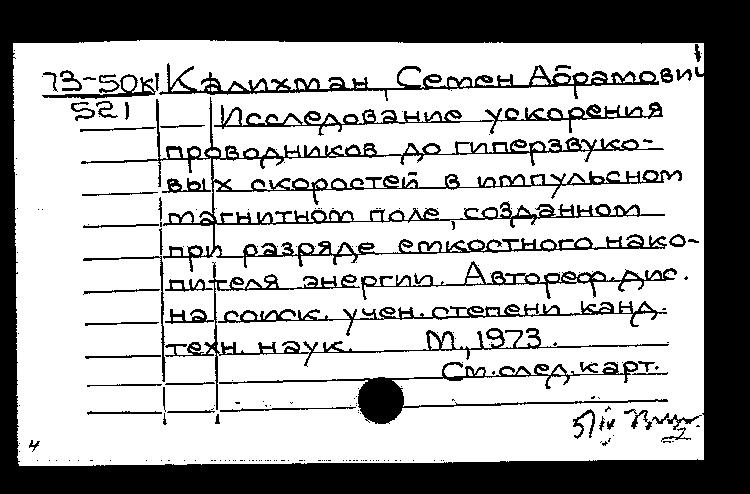 73-50к Калихман, Семен Абрамович
521 Исследование ускорения
проводников до гиперзвуко-
вых скоростей в импульсном
магнитном поле, созданном
при разряде емкостного нако-
пителя энергии. Автореф. дис.
на соиск. учен. степени канд.
техн. наук. М., 1973.
См. след. карт.
5/IV
4